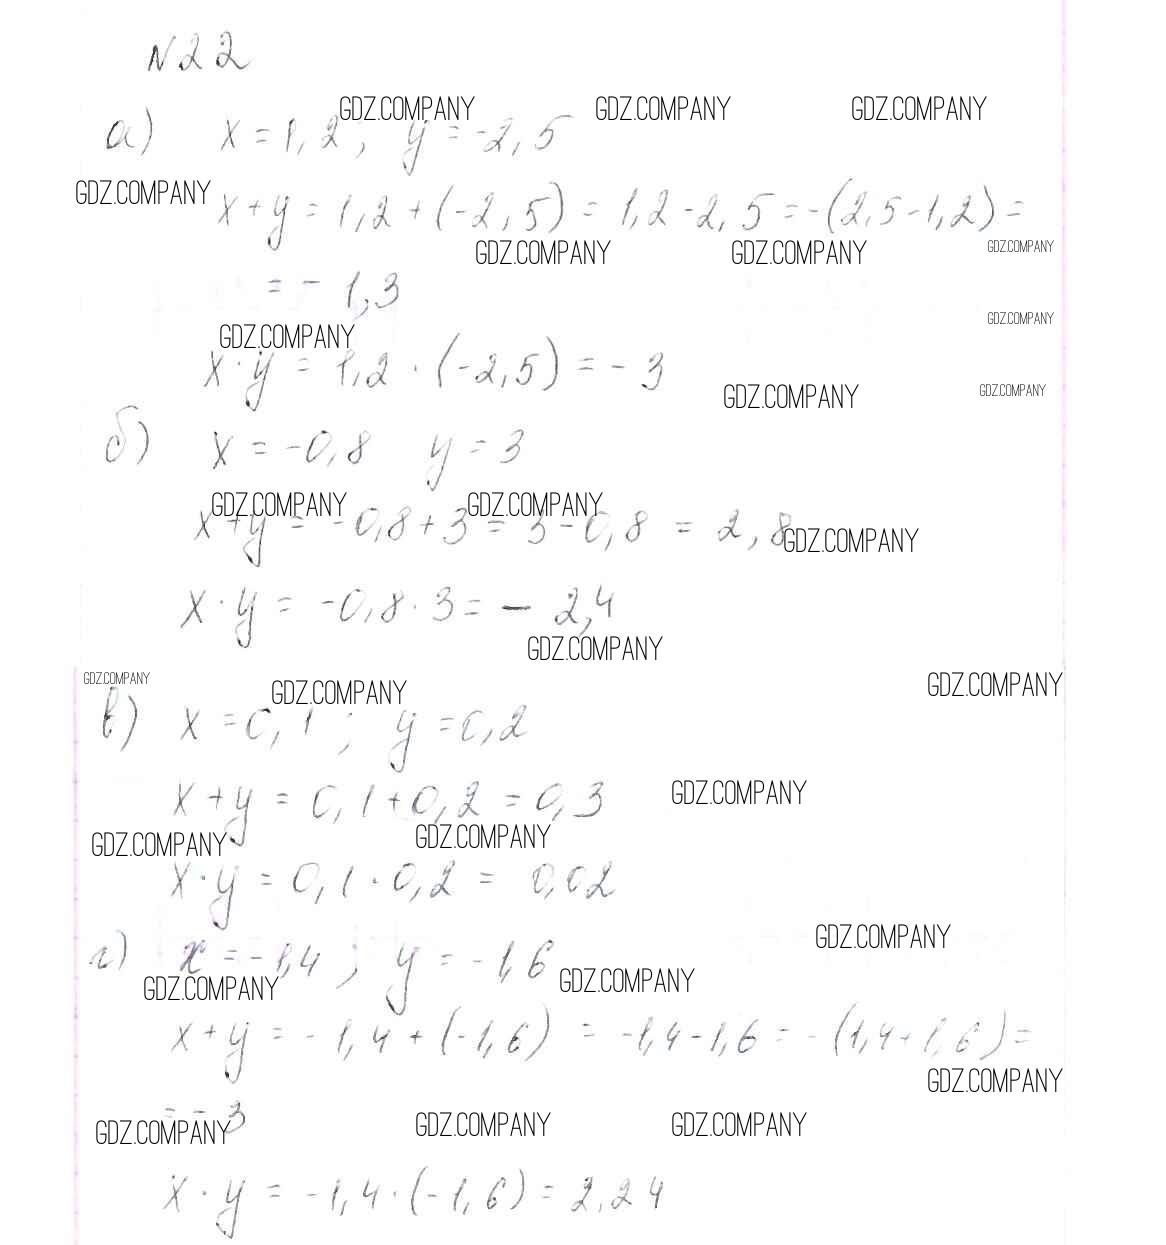 N 22
GDZ.COMPANY GDZ.COMPANY GDZ.COMPANY
а) x = 1,2 ; y = -2,5
GDZ.COMPANY
x + y = 1,2 + (-2,5) = 1,2 - 2,5 = -(2,5 - 1,2) =
GDZ.COMPANY GDZ.COMPANY GDZ.COMPANY
= - 1,3
GDZ.COMPANY
GDZ.COMPANY
x · y = 1,2 · (-2,5) = - 3
GDZ.COMPANY GDZ.COMPANY
б) x = -0,8 y = 3
GDZ.COMPANY GDZ.COMPANY
x + y = -0,8 + 3 = 3 - 0,8 = 2,8
GDZ.COMPANY
x · y = -0,8 · 3 = - 2,4
GDZ.COMPANY
GDZ.COMPANY GDZ.COMPANY GDZ.COMPANY
в) x = 0,1 ; y = 0,2
x + y = 0,1 + 0,2 = 0,3
GDZ.COMPANY
GDZ.COMPANY GDZ.COMPANY
x · y = 0,1 · 0,2 = 0,02
GDZ.COMPANY
г) x = -1,4 ; y = -1,6
GDZ.COMPANY GDZ.COMPANY
x + y = -1,4 + (-1,6) = -1,4 - 1,6 = -(1,4 + 1,6) =
GDZ.COMPANY
= - 3
GDZ.COMPANY GDZ.COMPANY GDZ.COMPANY
x · y = -1,4 · (-1,6) = 2,24